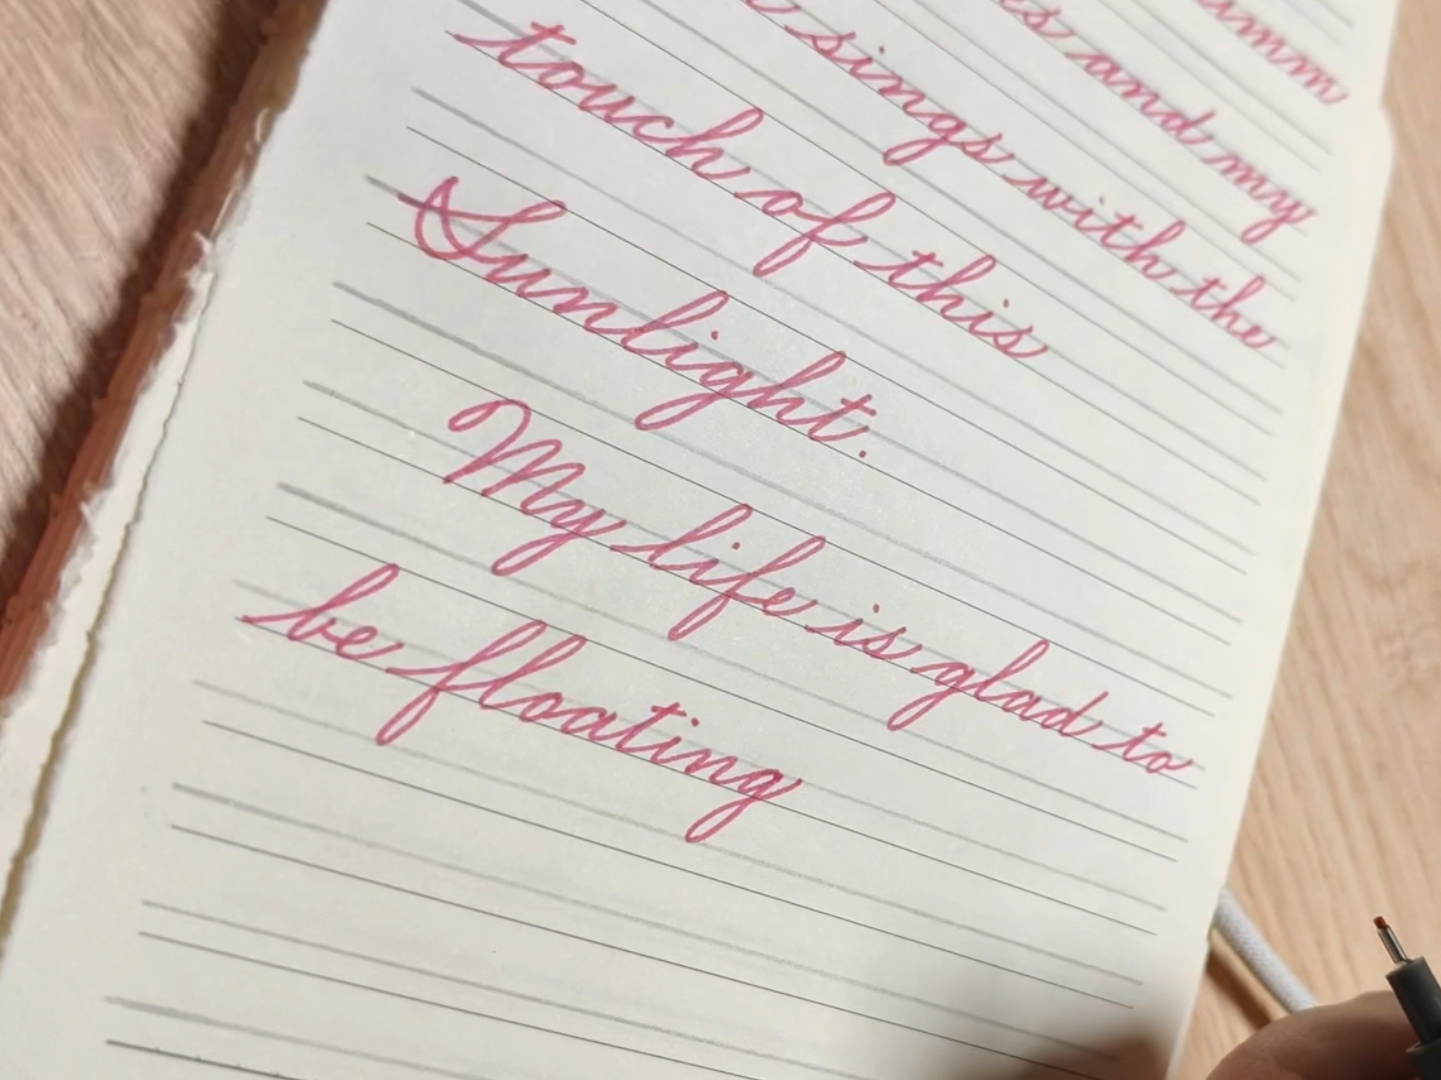 and my
sings with the
touch of this
Sunlight.
My life is glad to
be floating